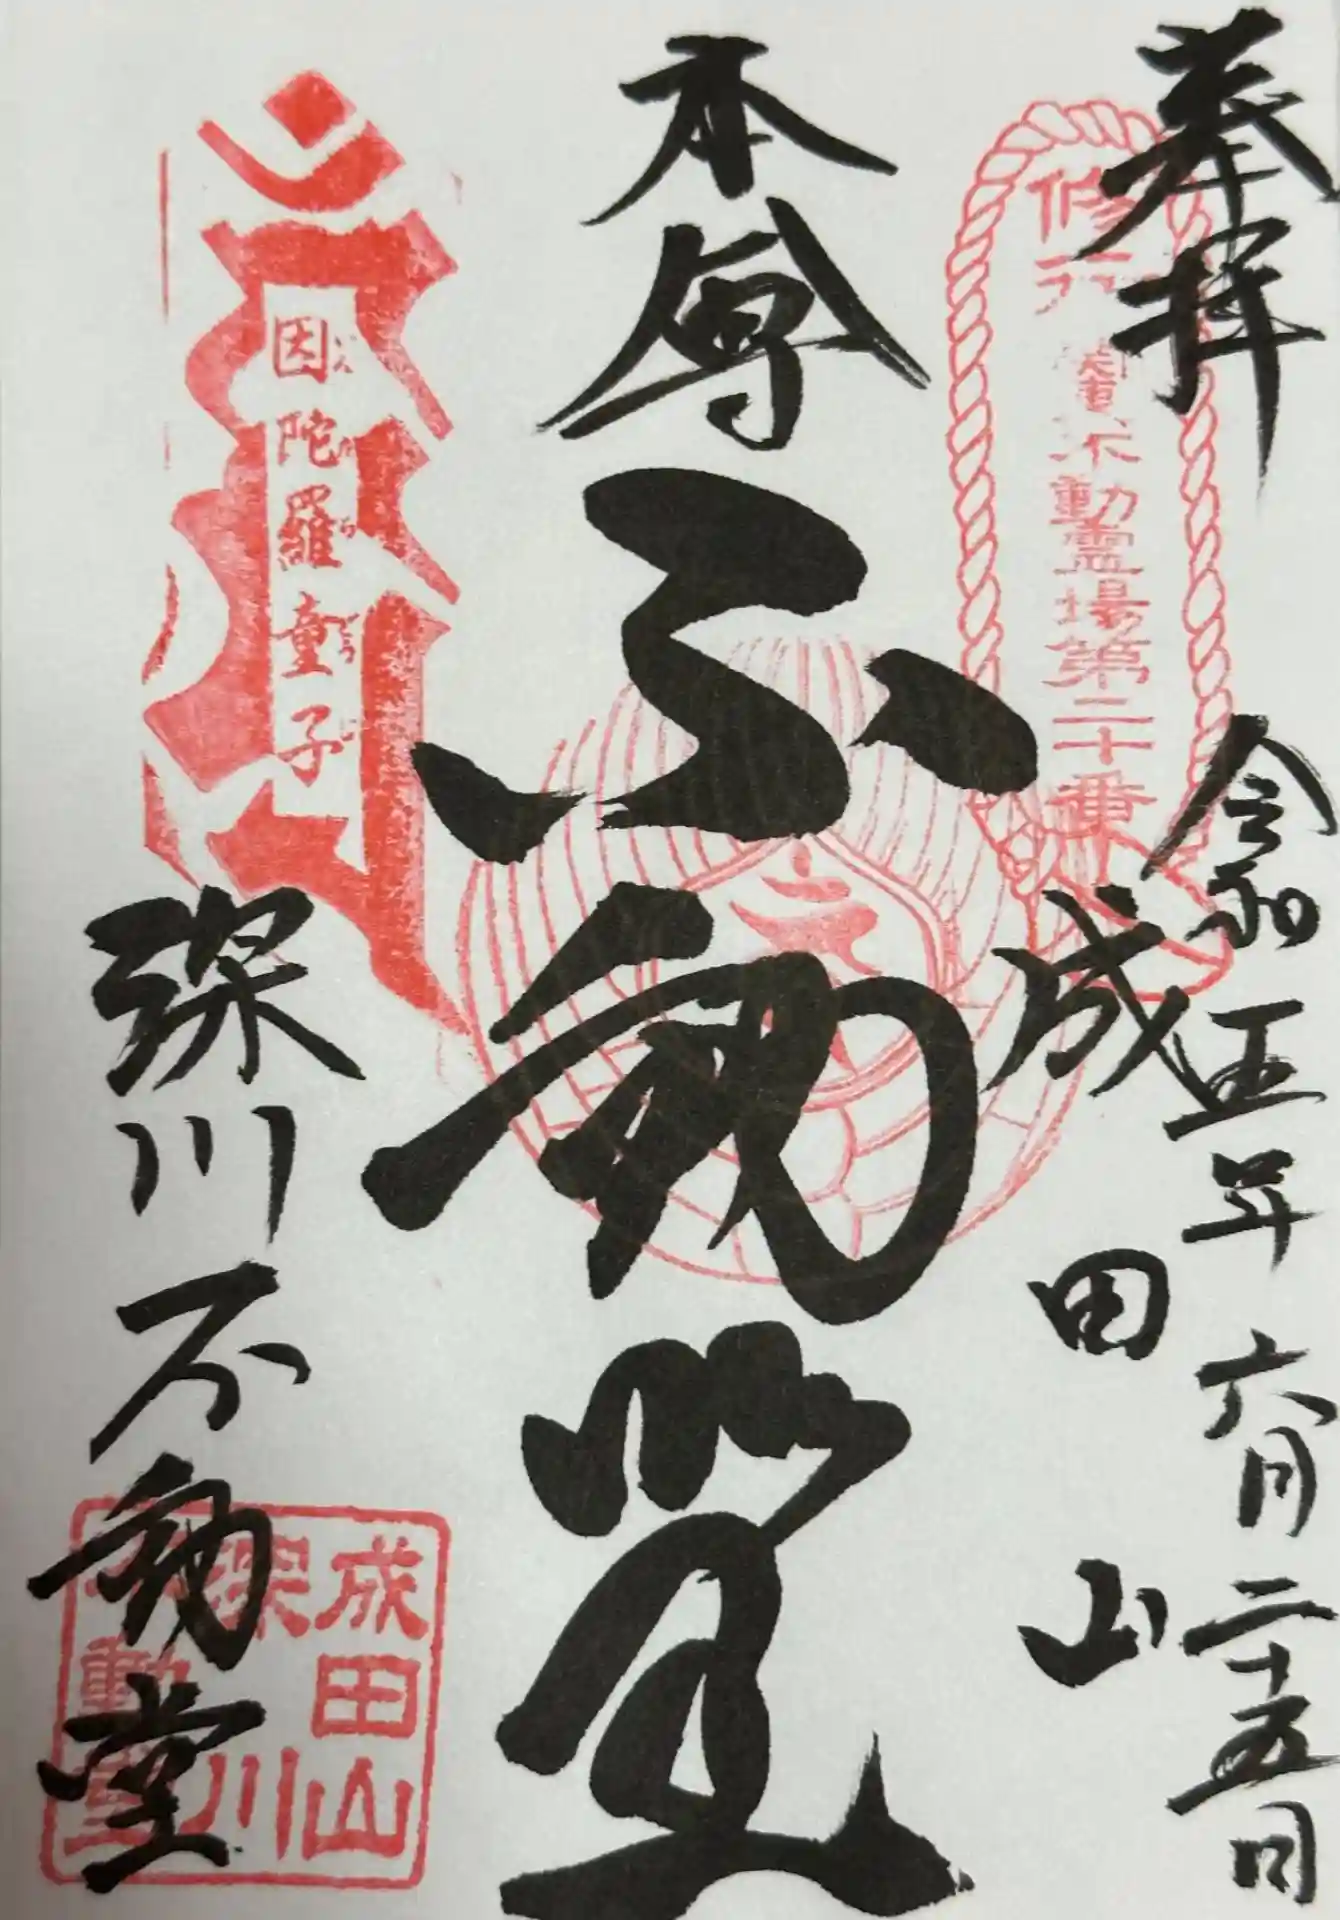 奉拝
令和五年六月二十五日
修行
関東不動霊場第二十番
成田山
本尊
不動堂
因陀羅童子
いんだらどうじ
深川不動堂
成田山
深川
不動堂